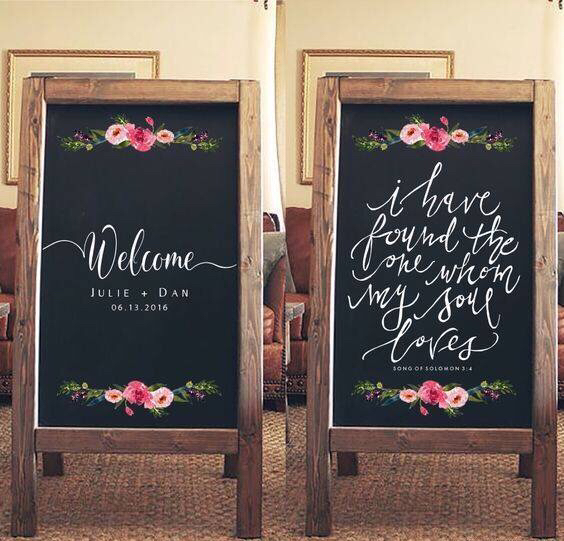 Welcome
JULIE + DAN
06.13.2016
i have
found the
one whom
my soul
loves
SONG OF SOLOMON 3:4